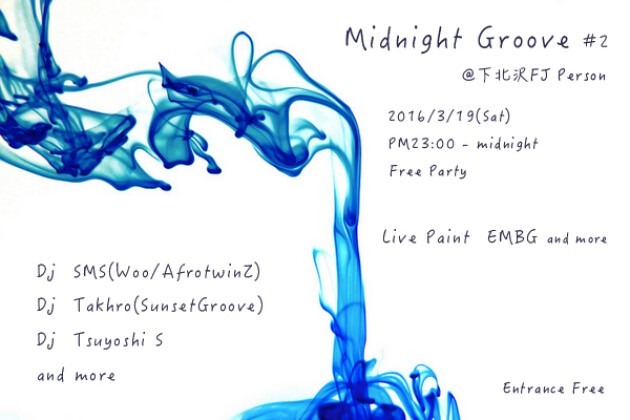 Midnight Groove #2
@下北沢FJ Person
2016/3/19(Sat)
PM23:00 - midnight
Free Party
Live Paint EMBG and more
Dj SMS(Woo/AfrotwinZ)
Dj Takhro(SunsetGroove)
Dj Tsuyoshi S
and more
Entrance Free